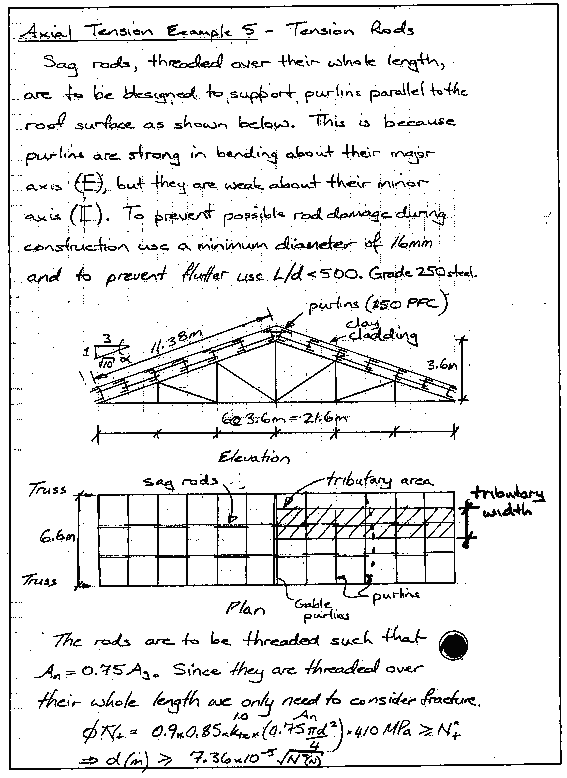 Axial Tension Example 5 - Tension Rods
Sag rods, threaded over their whole length,
are to be designed to support purlins parallel to the
roof surface as shown below. This is because
purlins are strong in bending about their major
axis (E), but they are weak about their minor
axis (I). To prevent possible rod damage during
construction use a minimum diameter of 16mm
and to prevent flutter use L/d < 500. Grade 250 steel.
purlins (250 PFC)
clay
cladding
11.38m
3
1
√10
α
3.6m
6@3.6m = 21.6m
Elevation
sag rods
tributary area
Truss
tributary
width
6.6m
Truss
Plan
Gable
purlins
purlins
The rods are to be threaded such that
An = 0.75 Ag. Since they are threaded over
their whole length we only need to consider fracture.
1.0
An
φNt = 0.9 x 0.85 x kte x (0.75 πd²/4) x 410 MPa ≥ Nt*
⇒ d(m) ≥ 7.36 x 10⁻⁵ √N*(N)